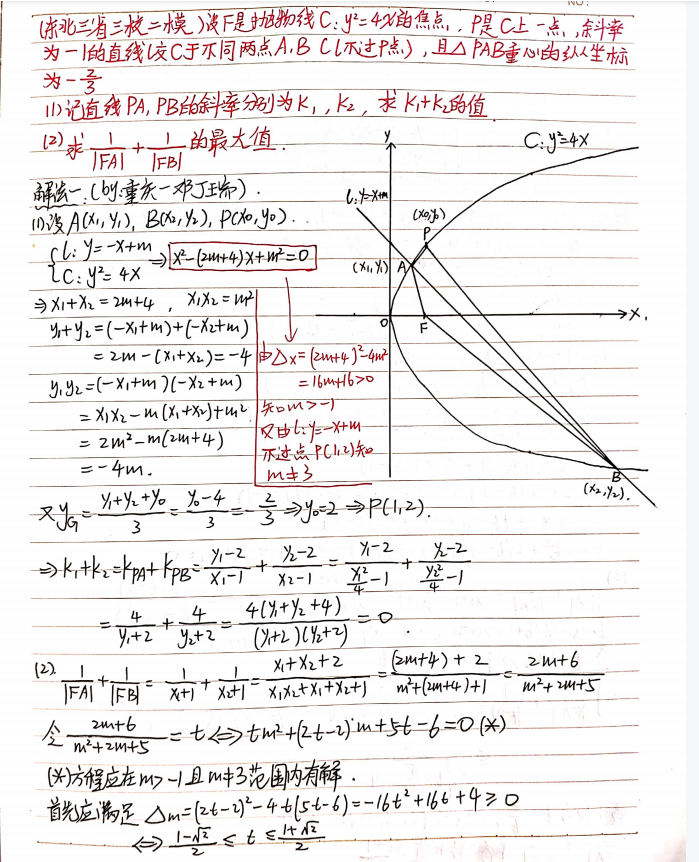 (东北三省三校二模)设F是抛物线C:y²=4x的焦点,P是C上一点,斜率
为-1的直线l交C于不同两点A,B(l不过P点),且△PAB重心的纵坐标
为-2/3
(1)记直线PA,PB的斜率分别为k₁,k₂,求k₁+k₂的值
(2)求 1/|FA| + 1/|FB| 的最大值.
解法一:(by:重庆-邓丁瑞).
(1)设A(x₁,y₁),B(x₂,y₂),P(x₀,y₀).
{l:y=-x+m
C:y²=4x ⇒ x²-(2m+4)x+m²=0
⇒x₁+x₂=2m+4, x₁x₂=m²
y₁+y₂=(-x₁+m)+(-x₂+m)
=2m-(x₁+x₂)=-4
y₁y₂=(-x₁+m)(-x₂+m)
=x₁x₂-m(x₁+x₂)+m²
=2m²-m(2m+4)
=-4m.
由△x=(2m+4)²-4m²
=16m+16>0
知m>-1
又由l:y=-x+m
不过点P(1,2)知
m≠3
y
C:y²=4x
l:y=-x+m
(x₀,y₀)
P
(x₁,y₁) A
O
F
x
B
(x₂,y₂).
又y_G=(y₁+y₂+y₀)/3=(y₀-4)/3=-2/3⇒y₀=2⇒P(1,2).
⇒k₁+k₂=k_PA+k_PB=(y₁-2)/(x₁-1)+(y₂-2)/(x₂-1)=(y₁-2)/(y₁²/4-1)+(y₂-2)/(y₂²/4-1)
=4/(y₁+2)+4/(y₂+2)=4(y₁+y₂+4)/((y₁+2)(y₂+2))=0.
(2). 1/|FA|+1/|FB|=1/(x₁+1)+1/(x₂+1)=(x₁+x₂+2)/(x₁x₂+x₁+x₂+1)=((2m+4)+2)/(m²+(2m+4)+1)=(2m+6)/(m²+2m+5)
令(2m+6)/(m²+2m+5)=t⇔tm²+(2t-2)·m+5t-6=0(*)
(*)方程应在m>-1且m≠3范围内有解.
首先应满足 △m=(2t-2)²-4t(5t-6)=-16t²+16t+4≥0
⇔(1-√2)/2≤t≤(1+√2)/2